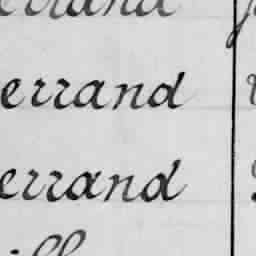 errand
errand
errand
ill